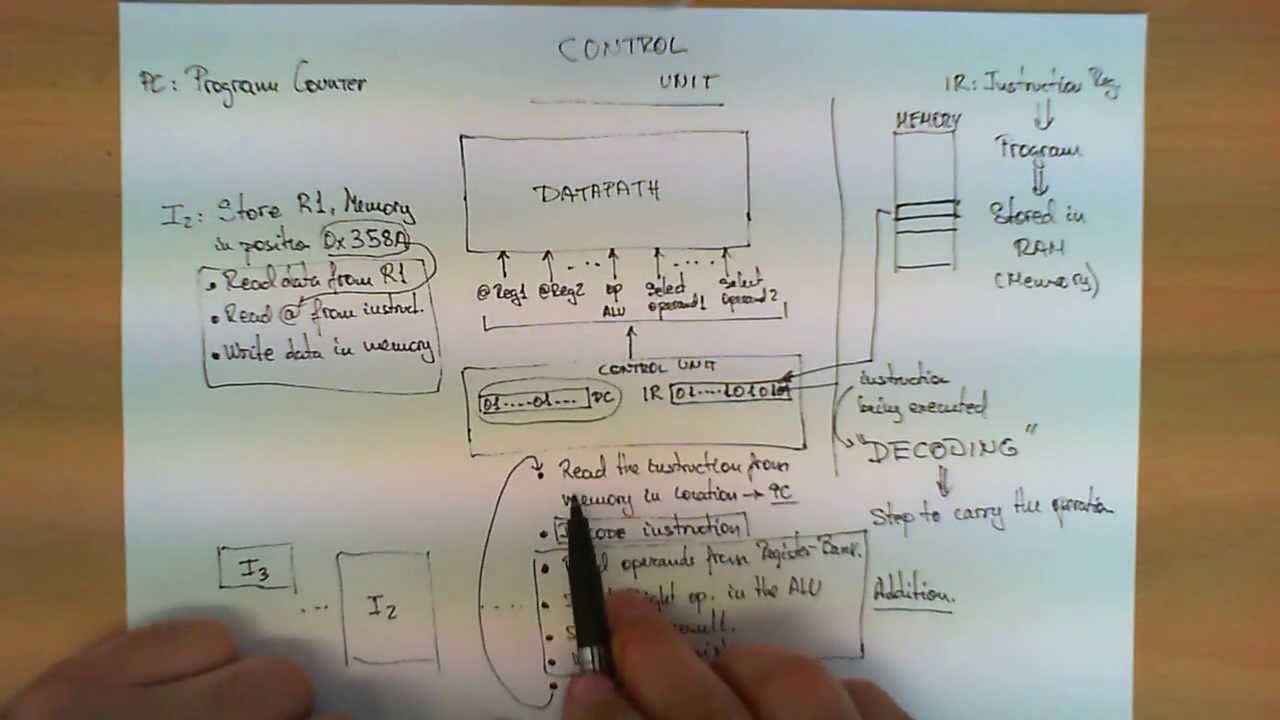 CONTROL
UNIT
PC: Program Counter
IR: Instruction Reg
MEMORY
Program
Stored in
RAM
(Memory)
DATAPATH
I2: Store R1, Memory
in position 0x358A
• Read data from R1
• Read @ from instruct.
• Write data in memory
@Reg1 @Reg2 ... op ALU Select operand1 .... Select operand2
CONTROL UNIT
01....01... PC IR 01....101010
instruction
being executed
"DECODING"
Step to carry the operation
• Read the instruction from
memory in location → PC
• instruction
• operands from Register Bank.
• op. in the ALU
•
•
•
Addition.
I3 ... I2 ....